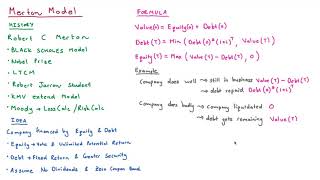 Merton Model
HISTORY
Robert C Merton
• BLACK SCHOLES MODEL
• Nobel Prize
• LTCM
• Robert Jarrow Student
• KMV extend Model
• Moody → LossCalc / RiskCalc
IDEA
Company Financed by Equity & Debt
• Equity → Vote & Unlimited Potential Return
• Debt → Fixed Return & Greater Security
• Assume No Dividends & Zero Coupon Bond
FORMULA
Value(0) = Equity(0) + Debt(0)
Debt(T) = Min ( Debt(0)*(1+i)^T, Value(T)
Equity(T) = Max ( Value(T) - Debt(T), 0 )
Example
Company does well → still in business Value(T) - Debt(T)
→ debt repaid Debt(0)*(1+i)^T
Company does badly → company liquidated 0
→ debt gets remaining Value(T)